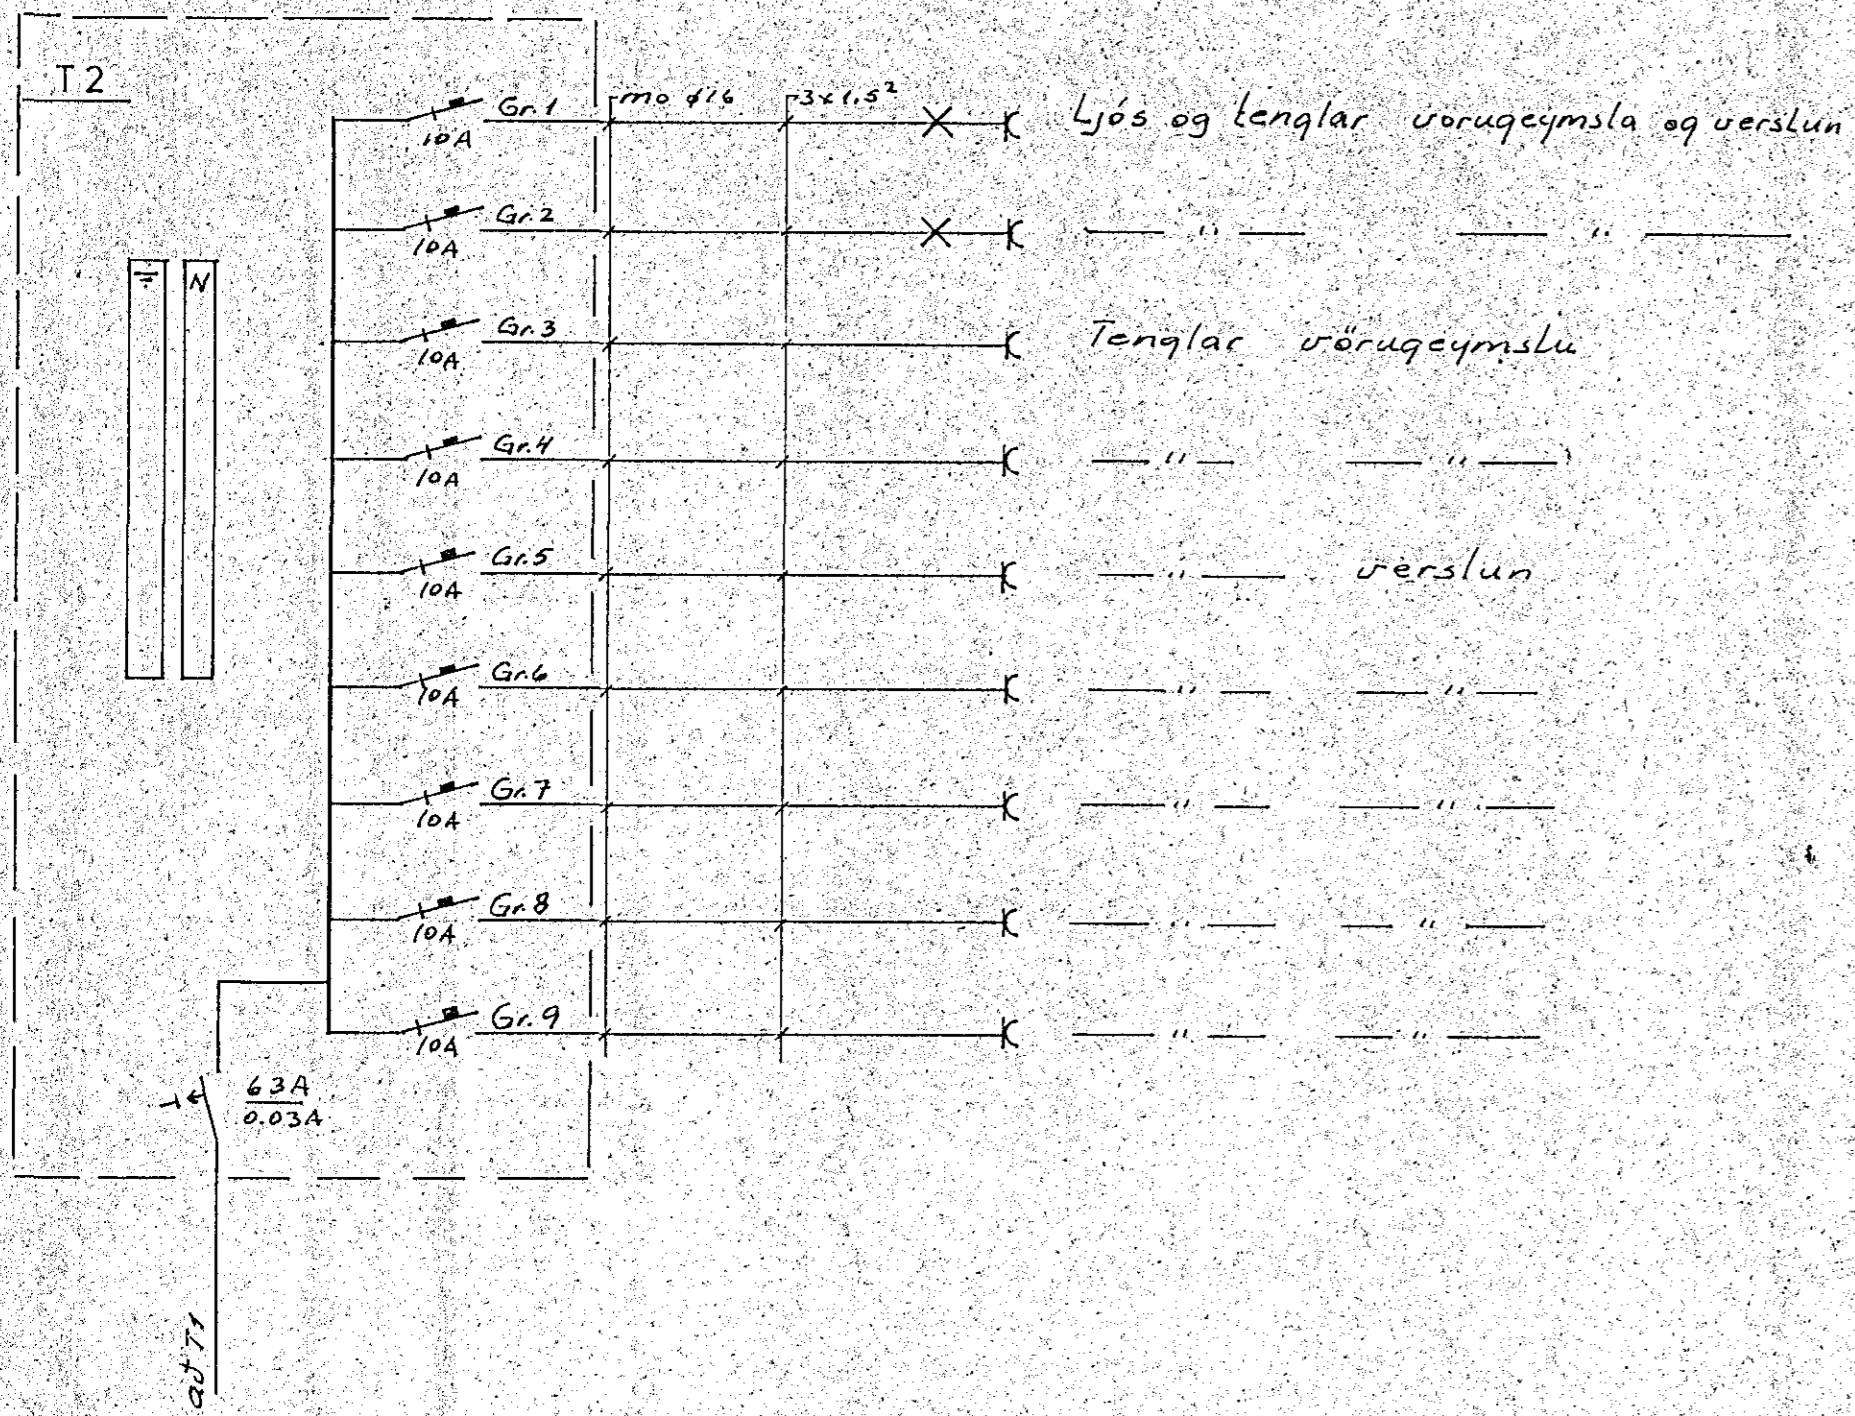 T2
Gr.1 mo ø16 3x1.5² Ljós og tenglar vorugeymsla og verslun
10A
Gr.2 — " — — " —
10A
N
Gr.3 Tenglar vörugeymslu
10A
Gr.4 — " — — " —
10A
Gr.5 — " — verslun
10A
Gr.6 — " — — " —
10A
Gr.7 — " — — " —
10A
Gr.8 — " — — " —
10A
Gr.9 — " — — " —
10A
63A
0.03A
að T1